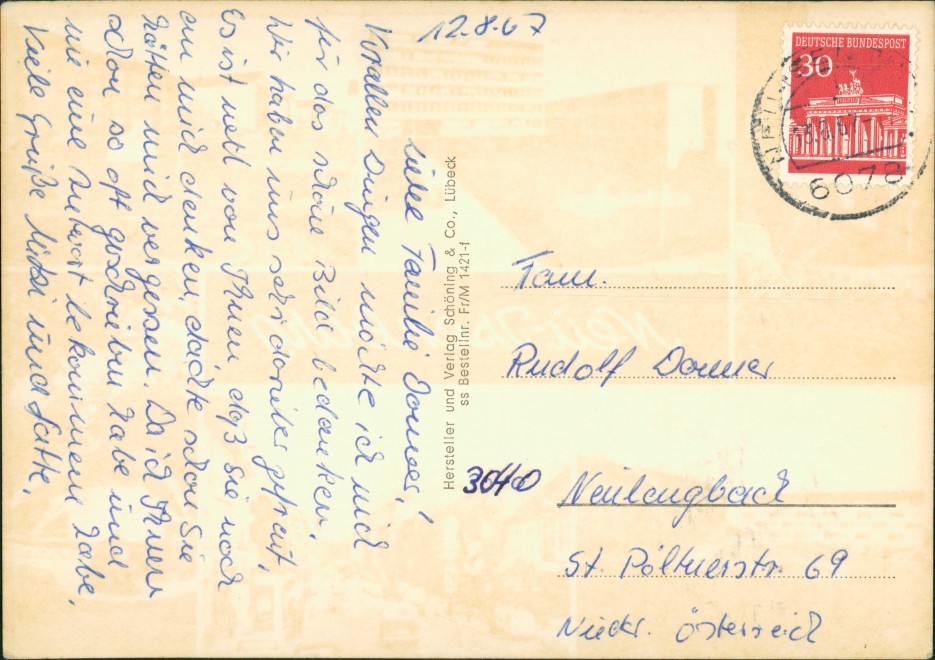 12.8.67
Liebe Familie Donner!
Vorallen Dingen möchte ich mich
für das schöne Bild bedanken,
Wir haben uns sehr darüber gefreut,
Es ist nett von Ihnen, daß Sie noch
an mich denken, dachte schon Sie
hätten mich vergessen. Da ich Ihnen
schon so oft geschrieben habe und
nie eine Antwort bekommen habe.
Viele Grüße und
Hersteller und Verlag Schöning & Co., Lübeck
ss Bestellnr. Fr/M 1421-f
DEUTSCHE BUNDESPOST
30
6078
Fam.
Rudolf Donner
3040 Neulengbach
St. Pöltnerstr. 69
Niedr. Österreich
Neu-Isenburg